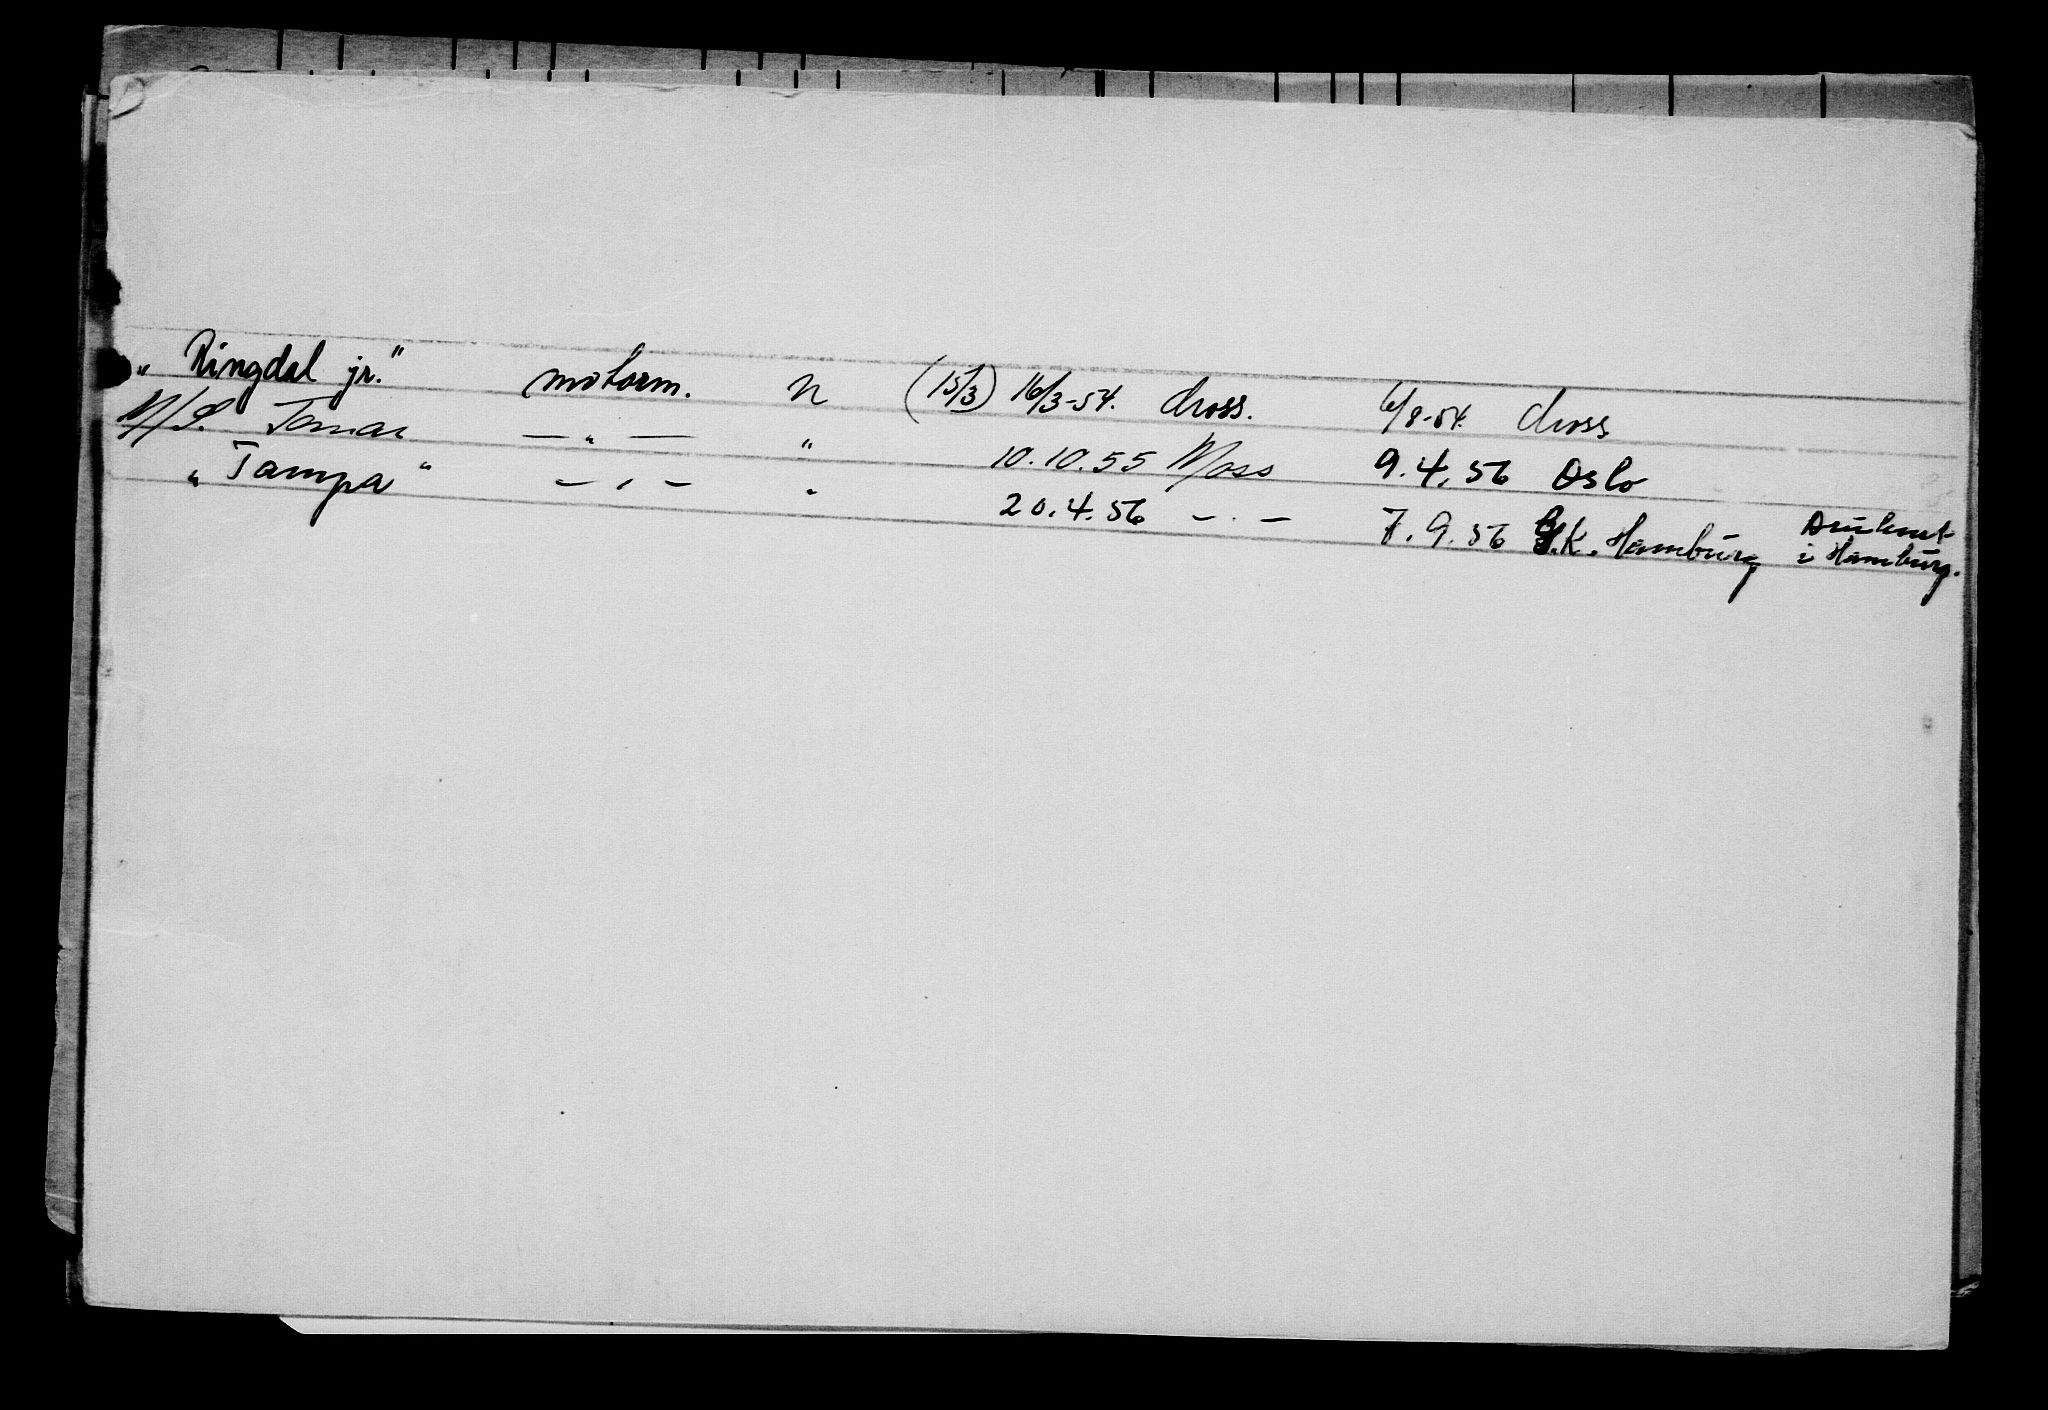 "Ringdal jr." motorm. n (15/3) 16/3-54. Moss. 6/8-54. Moss
M/S. Tomar — " — " 10.10.55 Moss 9.4.56 Oslo
"Tampa" — " — " 20.4.56 — " — 7.9.56 G.K. Hamburg Druknet
i Hamburg.